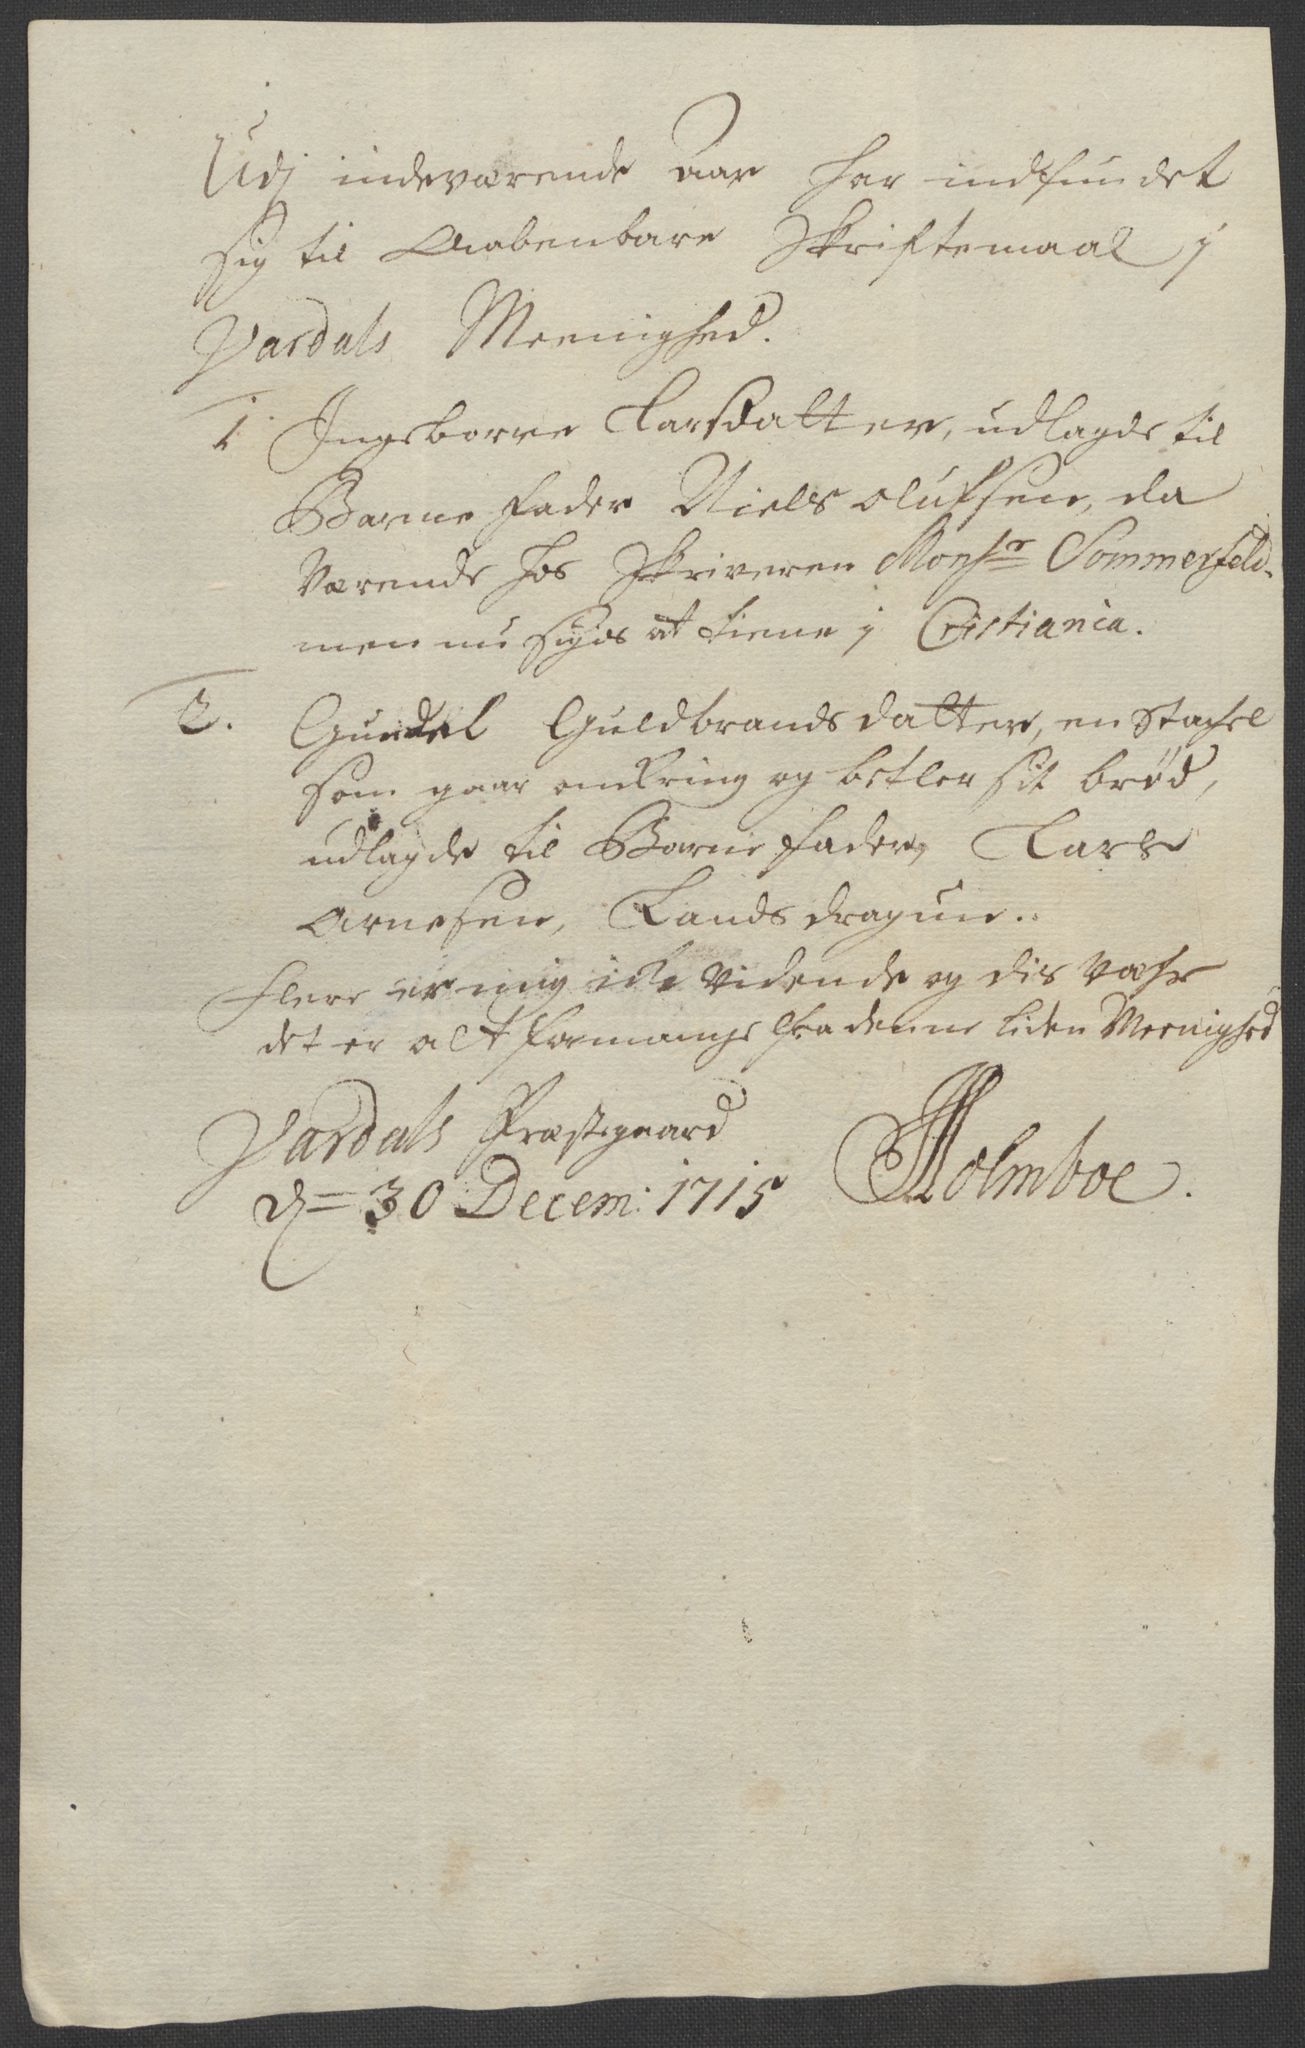 Udj indeværende Aar har indfundet
sig til Aabenbare Skriftemaal j
Vardals Meenighed.
1 Ingeborre Larsdatter, udlagde til
Barne fader Niels Olufsen, da
værende hos Skriveren Monsr Sommerfeld.
men nu siges at tiene j Christiania.
2. Gundel Guldbrands datter, en Stachel
som gaar omkring og betler sit brød,
udlagde til Barne fader, Lars
Arnesen, Lands dragun.
Flere er mig icke vidende og dis værre
det er alt formange fra denne liden Meenighed
Vardals Præstegaard
d= 30 Decem: 1715 Holmboe.